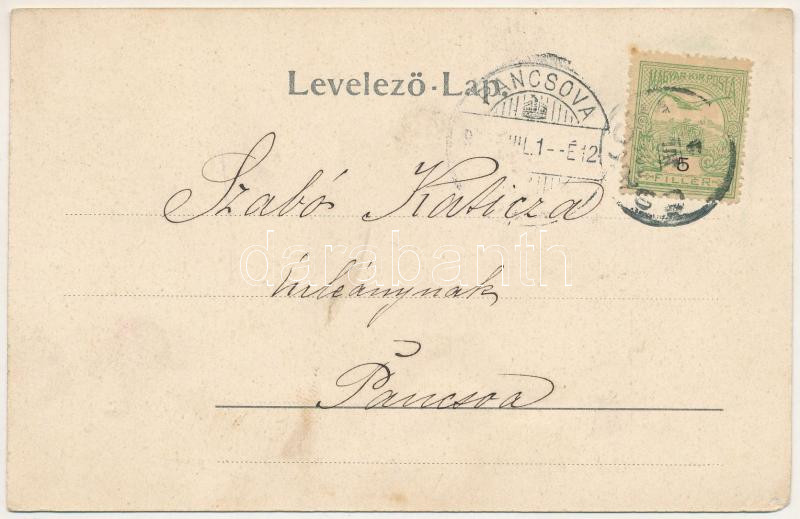 Levelező-Lap.
PANCSOVA
JUL.1--É12
MAGYAR KIR. POSTA
5
FILLÉR
Szabó Katicza
Úrleánynak
Páncsova
darabanth